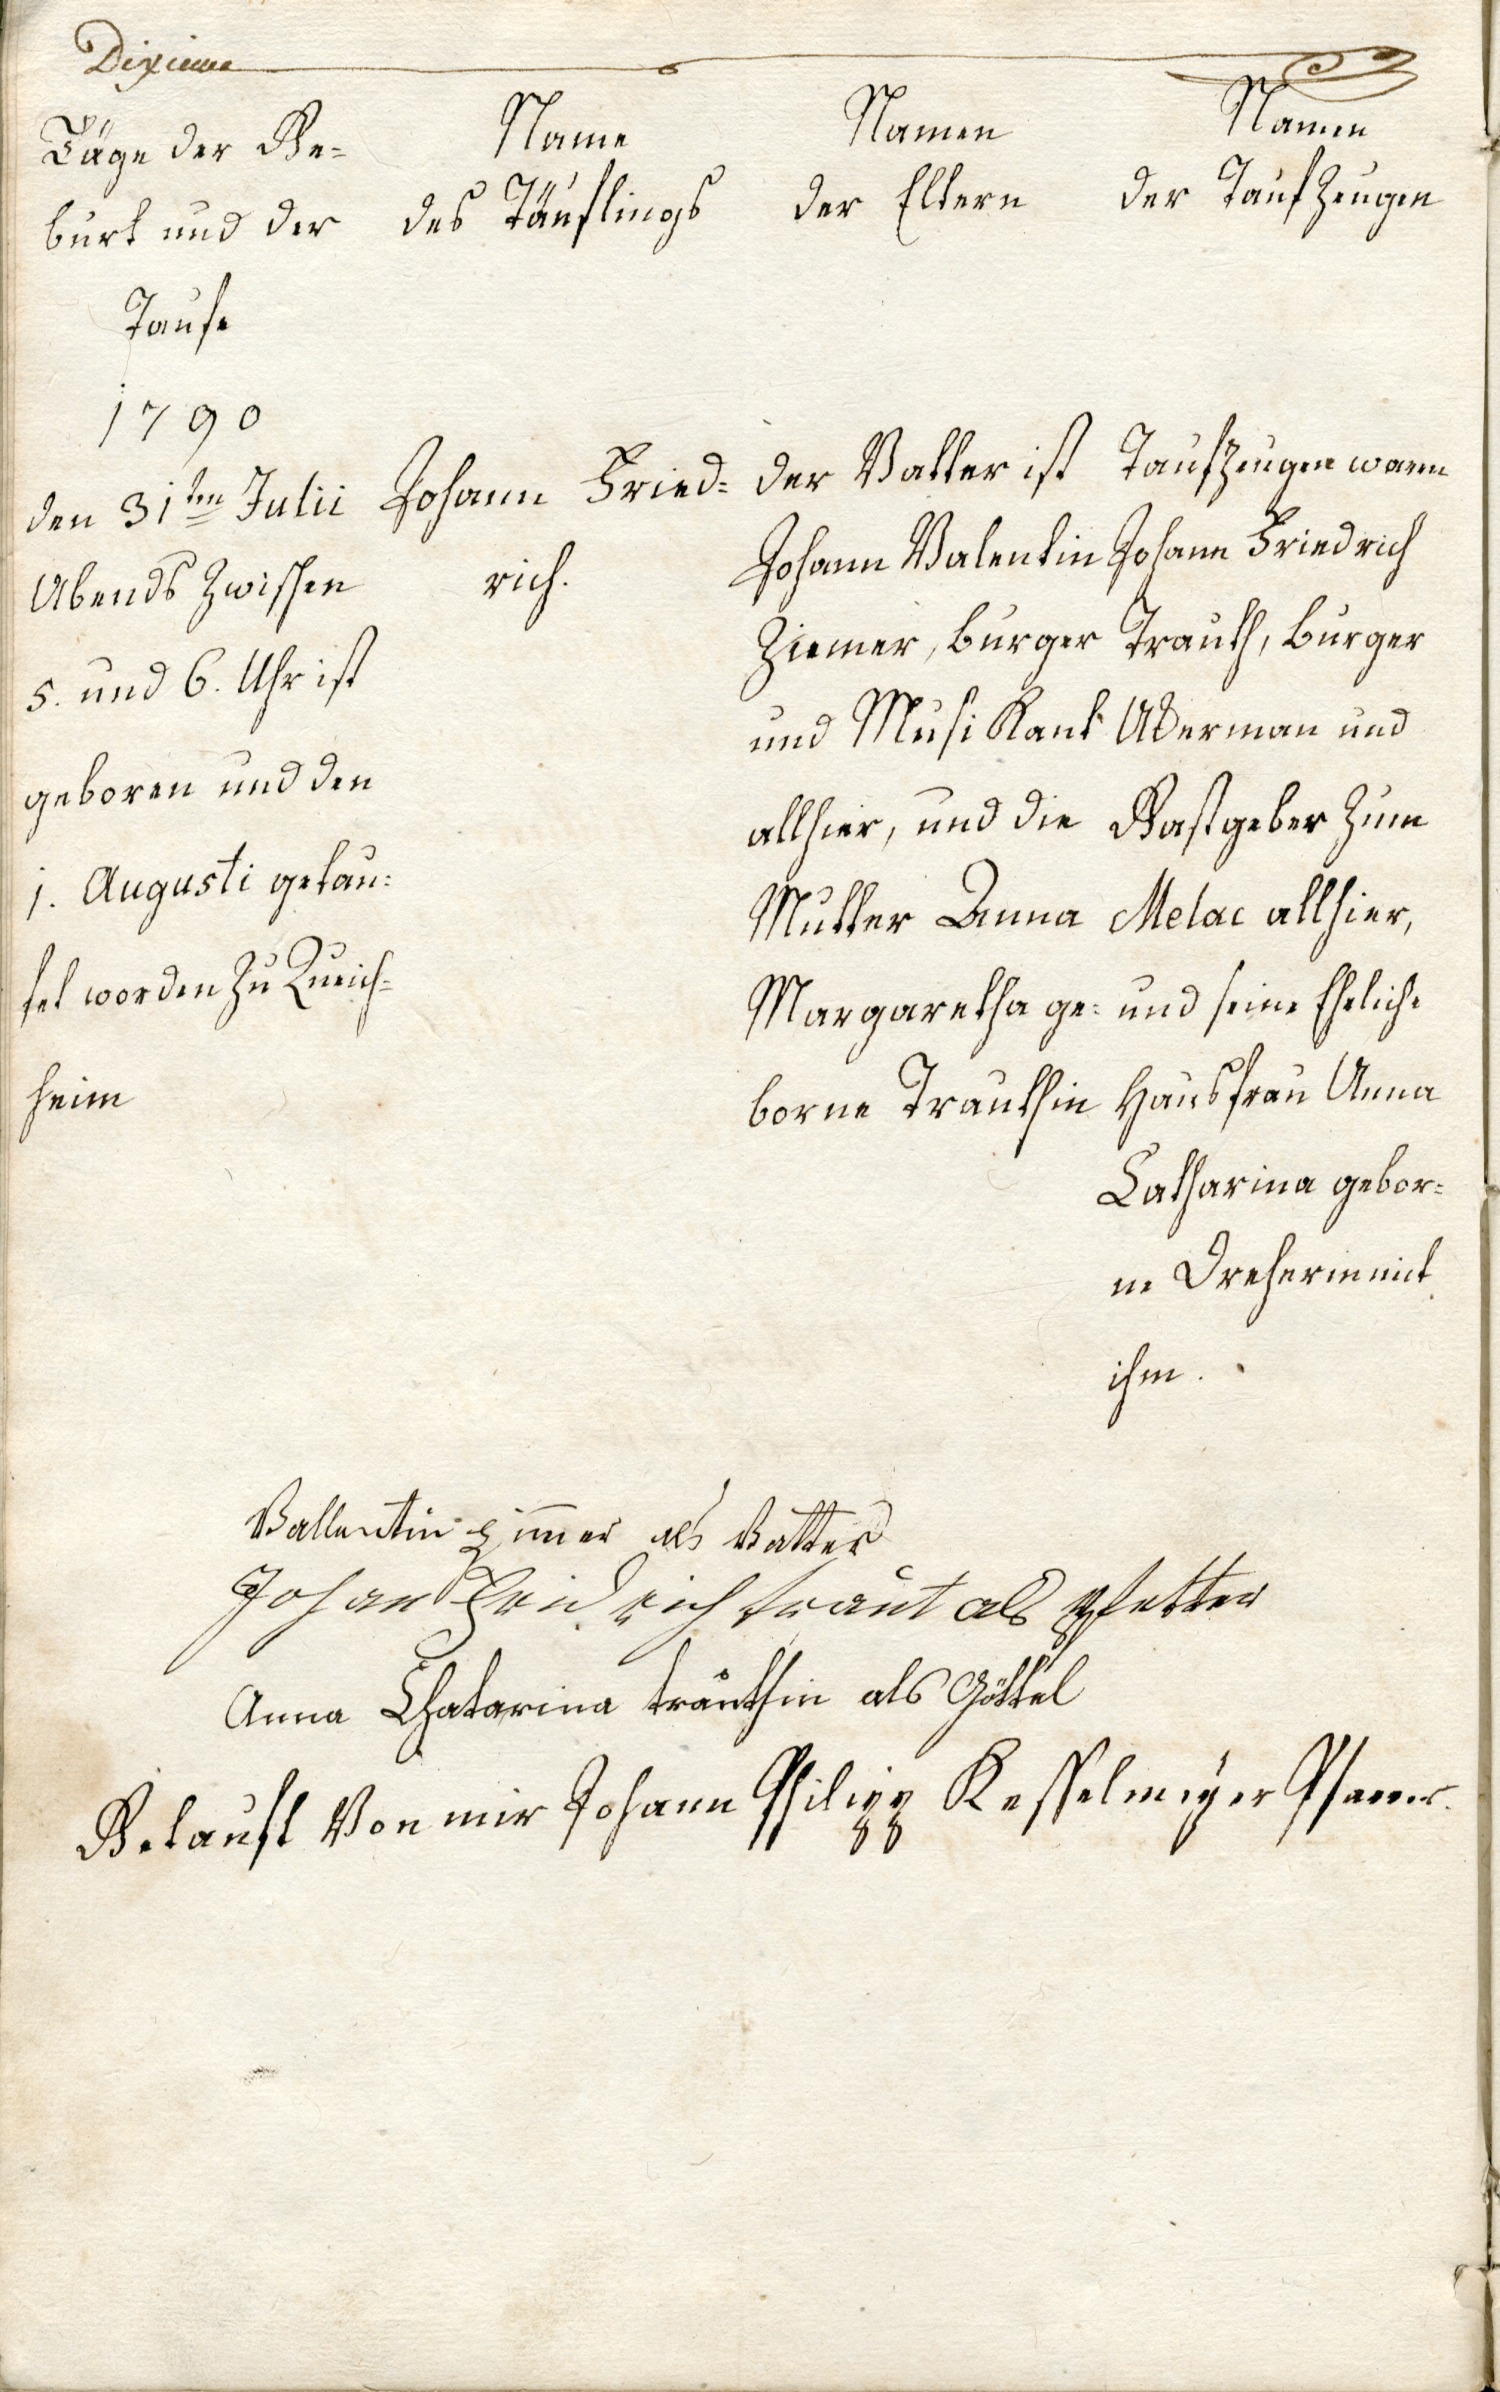 Dixieme
Täge der Ge=
burt und der
Taufe
Name
des Täuflings
Namen
der Eltern
Namen
der Taufzeugen
1790
den 31ten Julii
Abends zwischen
5. und 6. Uhr ist
geboren und den
1. Augusti getau=
fet worden zu Queich=
heim
Johann Fried=
rich.
der Vatter ist
Johann Valentin
Ziemer, burger
und Musikant
allhier, und die
Mutter Anna
Margaretha ge=
borne Trauthin
Taufzeugen waren
Johann Friedrich
Trauth, burger
Ackerman und
Gastgeber zum
Melac allhier,
und seine Eheliche
Hausfrau Anna
Catharina gebor=
ne Dreherin mit
ihm.
Vallentin Zimer als Vatter
Johan Fridrich traut als Pfetter
Anna Chatarina trauthin als Göttel
Getauft Von mir Johann Philipp Kesselmeyer Pfarrer.